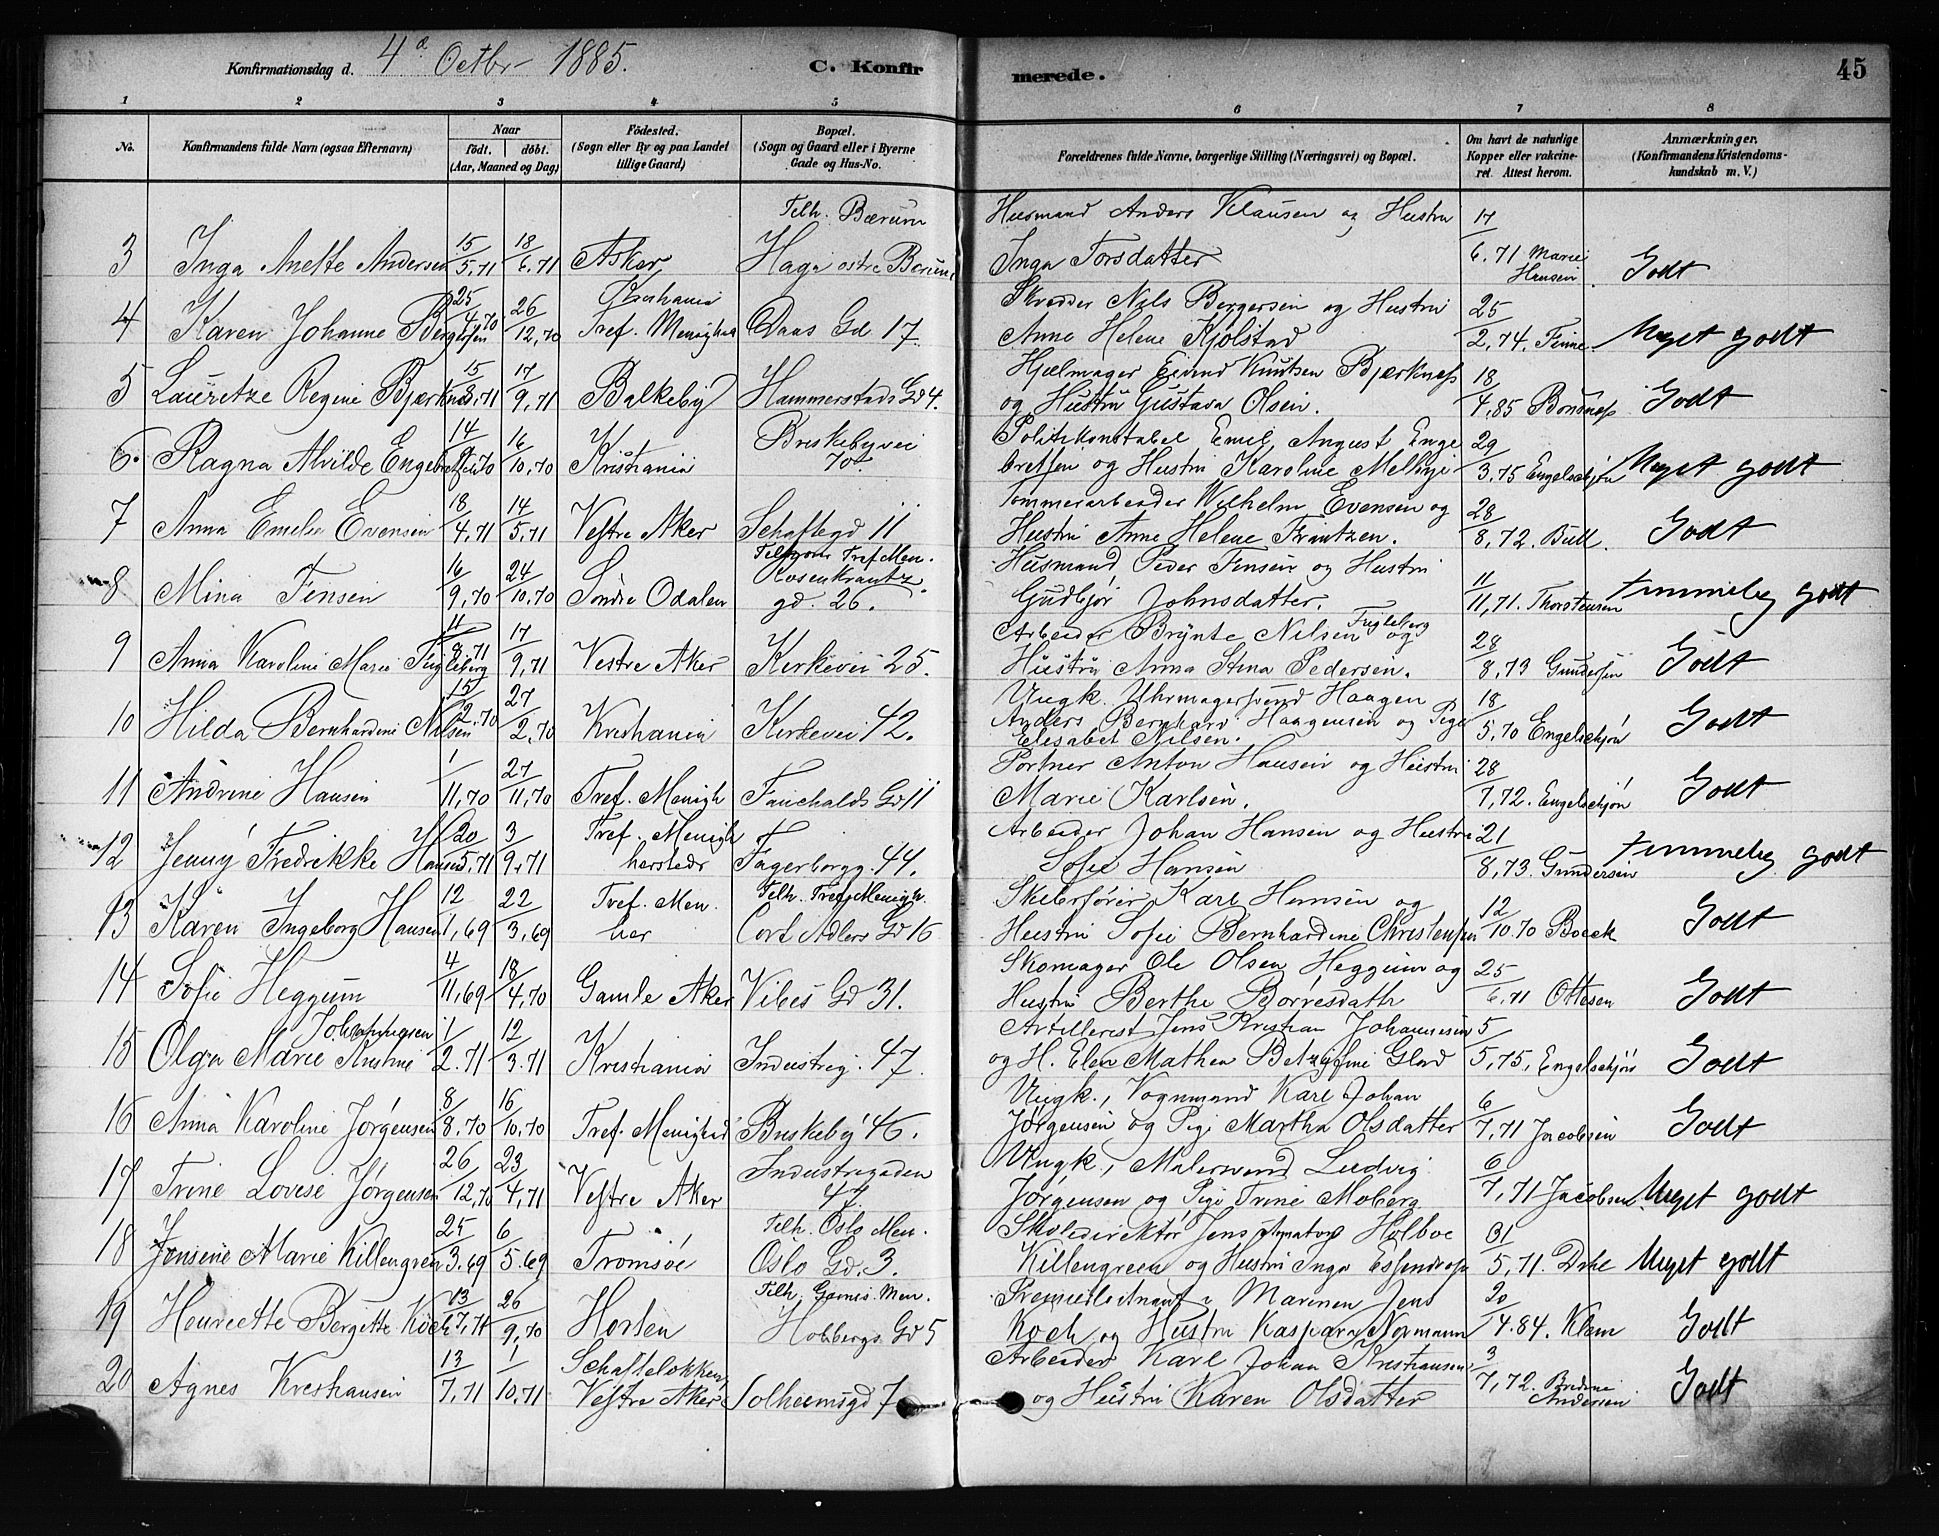 Konfirmationsdag d. 4de Octbr 1885. C. Konfirmerede. 45
1 2 3 4 5 6 7 8
No. Konfirmandens fulde Navn (ogsaa Efternavn) Naar født. døbt. (Aar, Maaned og Dag) Fødested. (Sogn eller By og paa Landet tillige Gaard) Bopæl. (Sogn og Gaard eller i Byerne Gade og Hus-No. Forældrenes fulde Navne, borgerlige Stilling (Næringsvei) og Bopæl. Om havt de naturlige Kopper eller vakcineret. Attest herom. Anmærkninger. (Konfirmandens Kristendomskundskab m. V.)
Tilh. Bærum Husmand Anders Klausen og Hustru 17
3 Inga Anette Andersen 15/5,71 18/6,71 Asker Haga østre Bærum Inga Torsdatter 6,71 Marie Hansen Godt
Christiania Skrædder Nils Bergersen og Hustru
4 Karen Johanne Bergersen 25/4,70 26/12,70 Tref. Menighed Daas Gd 17. Anne Helene Kjolstad 25/2,74. Finne Meget godt
Hjulmager Eivind Knutsen Bjærknæss
5 Lauretze Regine Bjærknæs 15/8,71 17/9,71 Balkeby Hammerstads Gd 4. og Hustru Gustava Olsen. 18/4,85 Godt
Briskebyvei Politikonstabel Emil August Enge
6. Ragna Alvilde Engebretsen 16/10,70 Kristiania 70 bretsen og Hustru Karoline Melbye 29/3,75 Engelschjøn Meget godt
Tømmerarbeider Wilhelm Evensen og
7 Anna Emelie Evensen 18/4,71 14/5,71 Vestre Aker Schaftegd 11 Hustru Anne Helene Frantzen. 28/8,72. Bull. Godt
Rosenkrantz Husmand Peder Finsen og Hustru
8 Mina Finsen 16/9,70 24/10,70 Søndre Odalen gd. 26. Gudbjør Johnsdatter. 11/11,71. Thorstensen temmelig godt
Arbeider Brynte Nilsen Fuglebjerg og
9 Anna Karoline Marie Fuglebjerg 11/8,71 17/9,71 Vestre Aker Kirkevei 25. Hustru Anna Stina Pedersen. 28/8,73 Gundersen Godt
Ungk. Uhrmagersvend Haagen
10 Hilda Bernhardine Nilsen 15/2,70 27/2,70 Kristiania Kirkevei 42. Anders Bernhard Haagensen og Pige 18/5,70 Engelschjøn Godt
Elisabet Nilsen.
Portner Anton Hansen og Hustru
11 Andrine Hansen 1/11,70 27/11,70 Tref. Menigh Fauchalds Gd 11 Marie Karlsen. 28/7,72. Engelschjøn Godt
Tref. Menigh Arbeider Johan Hansen og Hustru
12 Jenny Fredrikke Hansen 20/5,71 3/9,71 hersteds Fagerborgg. 44. Sofie Hansen 21/8,73. Gundersen temmelig godt
Tref. Men. Tilh. Trefs Menigh. Karl Hansen og
13 Karen Ingeborg Hansen 12/1,69 22/3,69 her Cort Adlers Gd 16 Hustru Sofie Bernhardine Christensen 12/10.70 Boeck Godt
Skomager Ole Olsen Heggum og
14 Sofie Heggum 4/11,69 18/4,70 Gamle Aker Vibes Gd 31. Hustru Berthe Børresdatt 25/6,71 Ottesen Godt
Johannesen Artillerist Jens Kristian Johannesen
15 Olga Marie Kristine 1/2.71 12/3.71 Kristiania Industrig. 47. og H. Elen Mathea Betzysine Glad 5/5,75, Engelschjøn Godt
Ungk., Vognmand Karl Johan
16 Anna Karoline Jørgensen 8/8,70 16/10,70 Tref. Menighed Briskeby 46. Jørgensen og Pige Martha Olsdatter 6/7,71 Jacobsen Godt
Industrigaden Ungk., Malersvend Ludvig
17 Trine Lovise Jørgensen 26/12,70 23/4,71 Vestre Aker 47. Jørgensen og Pige Trine Moberg 6/7,71 Jacobsen. Meget godt
Tilh. Oslo Men. Skoledirektør Jens Holboe
18 Jensine Marie Killengreen 25/3.69 6/5.69 Tromsøe Oslo Gd. 3. Killengreen og Hustru Inga Essendrop 31/5,71. Dahl Meget godt
Tilh. Garnis. Men. Premierlieutnant i Marinen Jens
19 Henriette Bergitte Koch 13/7,70 26/9,70 Horten Holbergs Gd 5 Koch og Hustru Kaspara Normann 20/4.84. Klem Godt
Schafteløkken Arbeider Karl Johan Kristiansen
20 Agnes Kristiansen 13/7,71 1/10,71 Vestre Aker Solheimsgd 7 og Hustru Karen Olsdatter 3/7,72. Bredine Andersen Godt